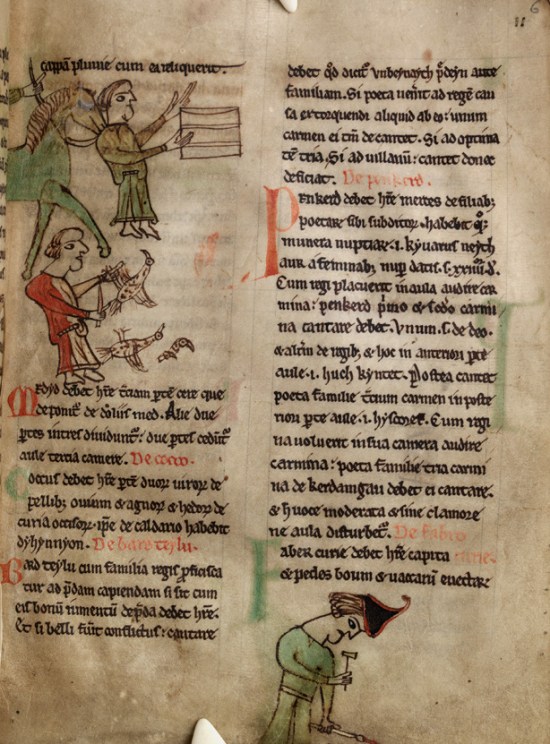 cappam pluuie cum eq̓i tauerit.
Medyd debet hr̄e t̓ciam parte cere que
deponit̓ de doliis med. Alie due
partes in tres diuidunt̓: due partes cedūt
aule tercia camere. De coco.
Coccus debet hr̄e
pellib; ouium & agnor̄ & hedor̄ de
curia occisor̄. ipse de caldario habebit
dyhynnyon. De bard teylu.
Bard teylu cum familia regis p̄ficisca
tur ad p̄dam capiendam si sit cum
eis bonū iumentū de p̄da debet hr̄e.
Et si belli fūit conflictus: cantare
debet qd̄ dicit̓ vnbeynaych p̄deyn ante
familiam. Si poeta ueniat ad regē cau
sa extorquendi aliquid ab eo: unum
carmen ei tm̄ decantet. Si ad optima
tē tria. Si ad uillanū: cantet donec
deficiat. De penkerd.
Penkerd debet hr̄e mercedes de filiab;
poetar̄ sibi subditor̄. habebit q̓;
munera nuptiar̄ .i. kyuarus neyth
aur a feminab; nup̄ datis .s. xxiiii. d̄.
Cum regi placuerit in aula audire car
mina: penkerd p̓mo & sc̄do carmi
na cantare debet. Vnum .s. de deo.
& alt̓m de regib; & hoc in anteriori parte
aule .i. huch kyntet. Postea cantet
poeta familie t̓cium carmen in poste
riori parte aule .i. hyscoref. Cum regi
na uoluerit in sua camera audire
carmina: poeta familie tria carmi
na de kerdamgau debet ei cantare.
& hoc uoce moderata & sine clamore
ne aula disturbet̓. De fabro
Faber curie debet hr̄e capita curie.
& pedes boum & uaccarū